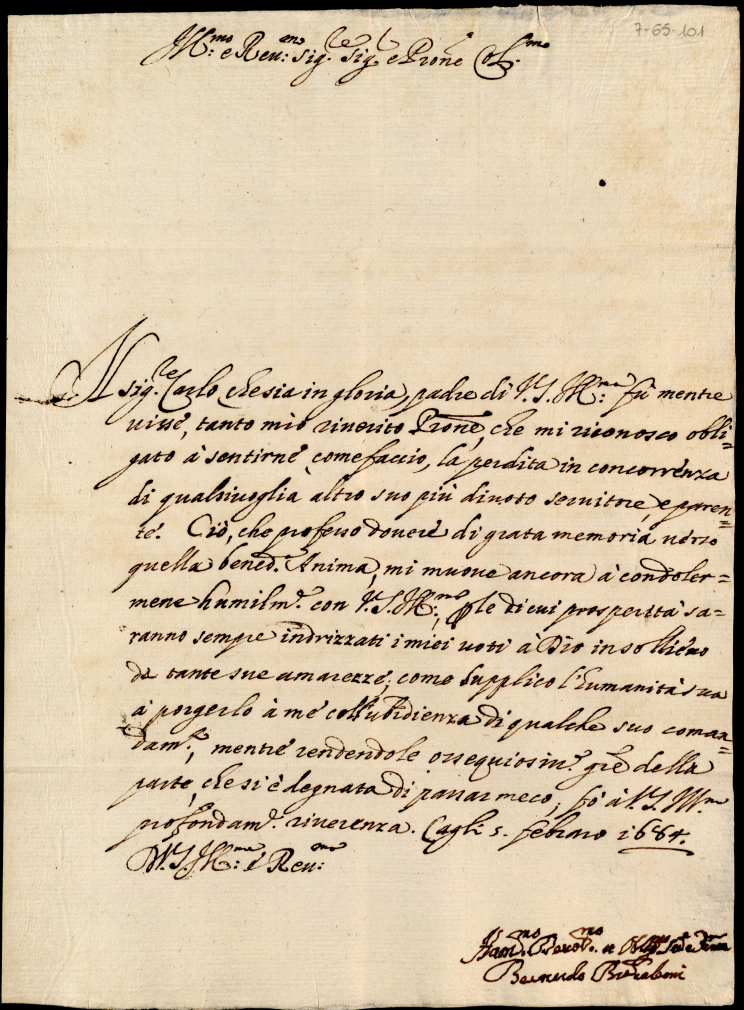 7-65-101
Ill:mo e Reu:mo Sig.re Sig.r e Prōne Col.mo
Il
sig.re Carlo, che sia in gloria, padre di V.S. Ill:ma fù mentre
uisse, tanto mio riuerito Prōne, che mi riconosco obli=
gato à sentirne, come faccio, la perdita in concorrenza
di qualsiuoglia altro suo più diuoto seruitore, e paren=
te. Ciò, che professo douere di grata memoria uerso
quella bened.a Anima, mi muoue ancora à condoler=
mene humilm.e con V.S. Ill:ma, ple di cui prosperità sa=
ranno sempre indrizzati i miei uoti à Dio in sollieuo
di tante sue amarezze, come supplico l'humanità sua
à porgerlo à me coll'ubidienza di qualche suo coman=
dam.o, mentre rendendole ossequiosiss.e grē della
parte, che si è degnata di passar meco, fò à V.S. Ill.ma
profondam.e riuerenza. Cagli 5. febraro 1684.
D.V.S. Ill:ma e Reu:ma
Hum.mo Deuot.mo et Obl.mo
Bernardo